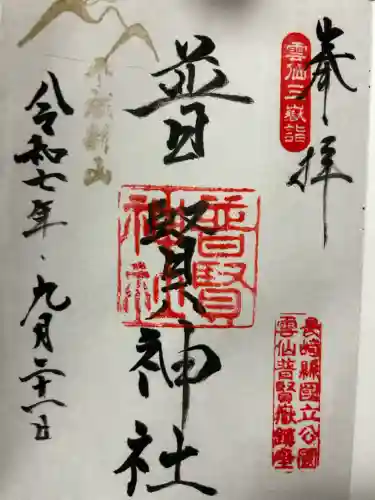 奉拝
雲仙三嶽詣
長崎縣國立公園
雲仙普賢嶽鎮座
普賢神社
普賢神社
平成新山
令和七年九月二十一日